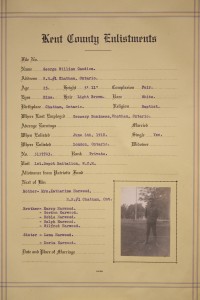 Kent County Enlistments
File No.
Name George William Harwood.
Address R.R.#1 Chatham, Ontario.
Age 22. Height 5' 11" Complexion Fair.
Eyes Blue. Hair Light Brown. Race White.
Birthplace Chatham, Ontario. Religion Baptist.
Where Last Employed Ontario.
Average Earnings Married
When Enlisted June 5th, 1918. Single Yes.
Where Enlisted London, Ontario. Widower
No. Rank Private.
Unit 1st. Depot Battalion, W.O.R.
Allotment from Patriotic Fund
Next of Kin
Mother- Mrs. Catherine Harwood,
R.R.#1 Chatham, Ont.
Brothers- Harry Harwood.
Harwood.
Harwood.
Ralph Harwood.
Wilfred Harwood.
Sister - Lena Harwood.
Harwood.
Date and Place of Marriage